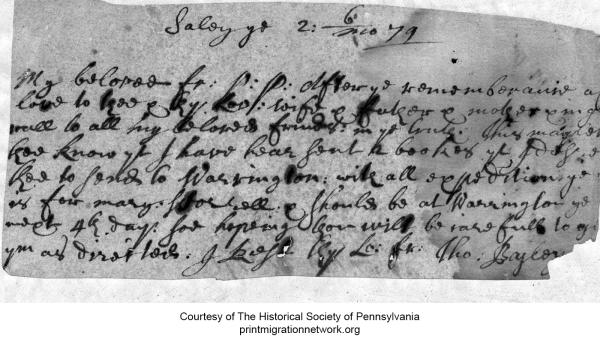 Saley ye 2: 6 mo 79
My beloved fr: P: P: After ye rememberance of
love to thee & thy wife & father & mother &
well to all my beloved friends in ye truth: this may let
thee know yt I have hear sent books yt I des
thee to send to Warrington: with all expedition ye
is for mary & should be at Warrington ye
next 4th day. soe hopeing thou will be carefull to
ym as directed. I Rest thy Lo: fr: Tho: Bayley
Courtesy of The Historical Society of Pennsylvania
printmigrationnetwork.org